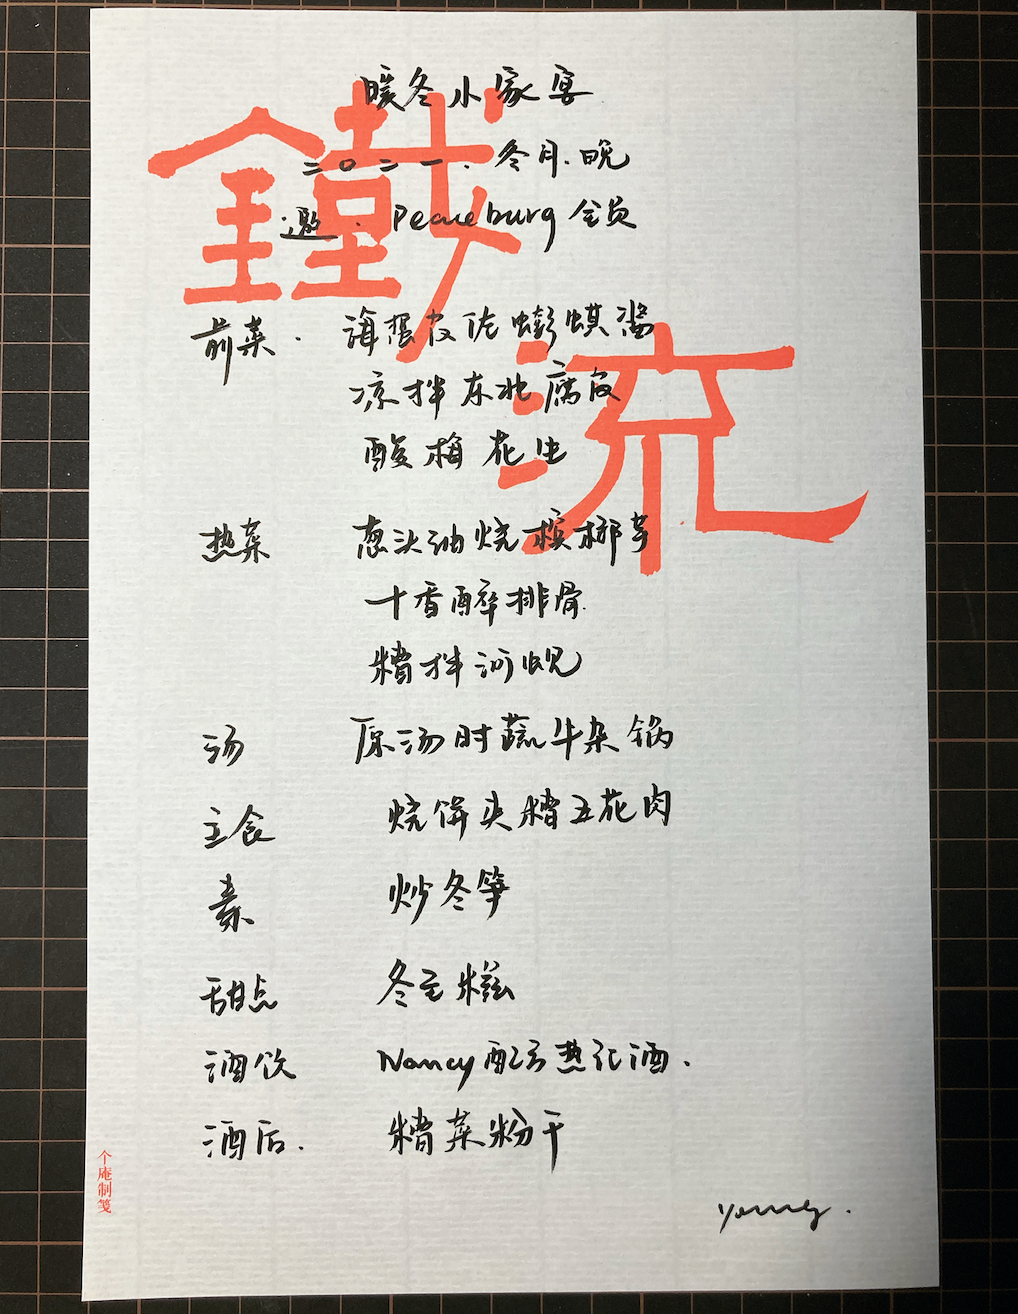 暖冬小家宴
二〇二一.冬月.晚
邀.Peaceburg 会员
鐵流
前菜. 海蜇皮佐蟛蜞酱
凉拌东北腐皮
酸梅花生
热菜 葱头油烧槟榔芋
十香醉排骨
糟拌河蚬
汤 原汤时蔬牛杂锅
主食 烧饼夹糟五花肉
素 炒冬笋
甜点 冬至糍
酒饮 Nancy配方热红酒.
酒后. 糟菜粉干
个庵制笺